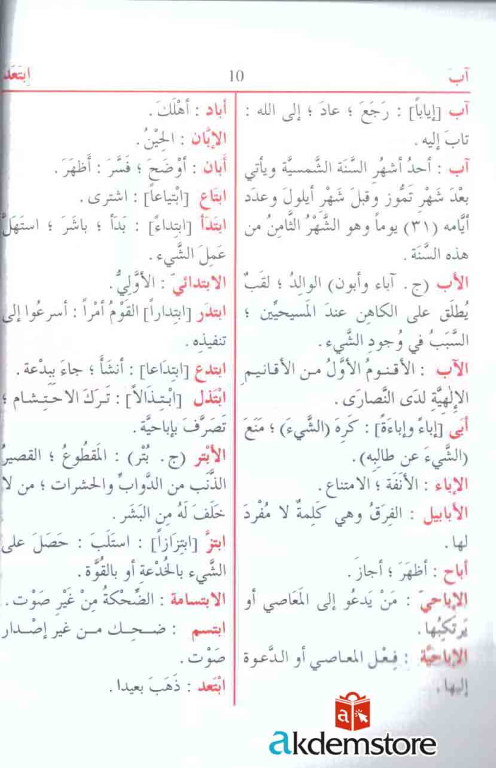 آبَ
10
اِبْتَعَد
آب [إياباً] : رَجَعَ ؛ عادَ ؛ إلى الله :
تابَ إليه .
آب : أحدُ أشهُرِ السَّنَة الشَّمسيَّة ويأتي
بعْدَ شَهْرِ تَمُّوز وقبلَ شَهْر أيلول وعَدد
أيَّامه (٣١) يوماً وهو الشَّهْرُ الثَّامنُ من
هذه السَّنَة .
الأب (ج. آباء وأبون) الوالدُ ؛ لقَبٌ
يُطلَق على الكاهن عندَ المَسيحيِّين ؛
السَّبَبُ في وُجود الشَّيء .
الآب : الأقنومُ الأوَّلُ مـن الأقـانيـم
الإلهيَّة لدَى النَّصارَى .
أبَى [إباءً وإباءَةً] : كَرِهَ (الشَّيءَ) ؛ مَنَعَ
(الشَّيءَ عن طالبِه).
الإباء : الأنَفَة ؛ الامتناع .
الأبابيل : الفِرَقُ وهي كَلِمَةٌ لا مُفْرَدَ
لها .
أباح : أظهَرَ ؛ أجازَ .
الإباحيّ : مَنْ يَدعُو إلى المَعَاصي أو
يَرتكِبُها .
الإباحيَّة : فِعْل المعـاصي أو الدَّعـوة
إليها .
أباد : أهْلَكَ .
الإبَّان : الحَيْنُ .
أبان : أوْضَحَ ؛ فسَّرَ : أظْهَرَ .
ابتَاع [ابْتِياعاً] : اشترى .
ابتَدَأ [ابتداءً] : بَدَأ ؛ باشَرَ ؛ استَهَلَّ
عَمِلَ الشَّيء .
الابتدائيّ : الأوَّليُّ .
ابتدَر [ابتداراً] القَوْمُ أمْراً : أسرعُوا إلى
تنفيذه .
ابتدع [ابتِدَاعا] : أنشَأَ ؛ جاءَ ببِدْعة .
ابْتَذل [ابْتِـذالاً] : تـرَكَ الاحتـشام ؛
تَصَرَّفَ بإباحيَّة .
الأبْتَر (ج. بُتْر) : المَقطُوعُ ؛ القصيرُ
الذَّنَب من الدَّوابِّ والحشرات ؛ من لا
خلَفَ لَه مِن البَشَر .
ابتزَّ [ابتِزازاً] : استَلَبَ : حَصَل على
الشَّيء بالخُدْعة أو بالقُوَّة .
الابتسامَة : الضِّحْكَةُ مِنْ غَيْرِ صَوْت .
ابتسم : ضـحِـك مـن غير إصْـدار
صَوْت .
ابْتَعد : ذَهَبَ بعيدا .
a
akdemstore